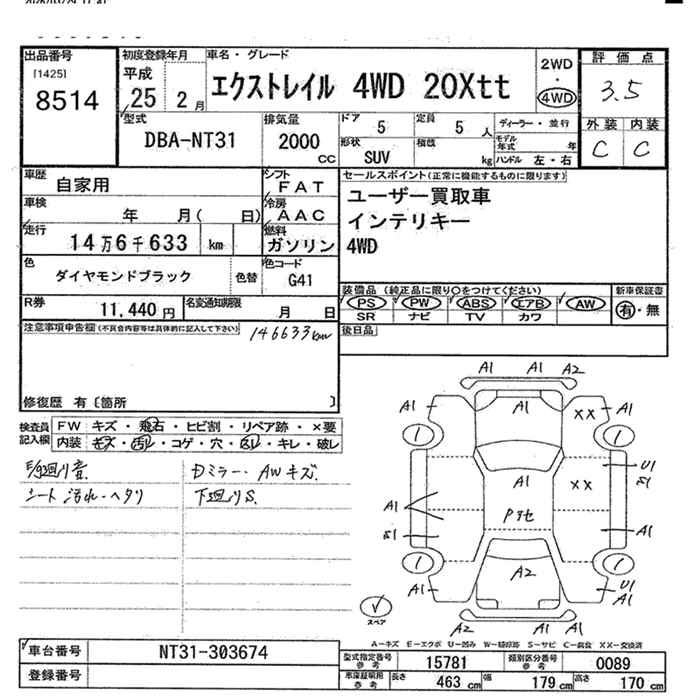 出品番号
[1425]
8514
初度登録年月
平成
25 2月
車名・グレード
エクストレイル 4WD 20Xtt
2WD
・
4WD
評価点
3.5
外装 内装
C C
型式
DBA-NT31
排気量
2000
cc
ドア 5
定員 5 人
形状 SUV
積載 kg
ディーラー・並行
モデル年式 年
ハンドル 左・右
車歴
自家用
シフト
FAT
車検
年 月( 日)
冷房
AAC
走行
14万6千633 km
燃料
ガソリン
色
ダイヤモンドブラック
色替
色コード
G41
R券
11,440円
名変通知期限
月 日
セールスポイント(正常に機能するものに限ります)
ユーザー買取車
インテリキー
4WD
装備品(純正品に限り○をつけてください)
PS PW ABS エアB AW
SR ナビ TV カワ
新車保証書
有・無
後日品
注意事項申告欄(不具合内容等は具体的に記入して下さい)
146633km
修復歴 有〔箇所 〕
検査員記入欄
FW キズ・飛石・ヒビ割・リペア跡・×要
内装 キズ・汚レ・コゲ・穴・スレ・キレ・破レ
Dミラー・AWキズ.
シート汚れ・ヘタリ
下廻りS.
A1 A1 A2
A1 A1 XX A1
1 1
A1 U1
S1
A1 XX
Pアセ
S1 A1
1 1
A1 A2 U1
A1
A1 A1 A2
スペア
A-キズ E-エクボ U-凹み W-補修跡 S-サビ C-腐食 XX-交換済
車台番号 NT31-303674
登録番号
型式指定番号 参考 15781
類別区分番号 参考 0089
車庫証明用 参考 長さ 463 cm 幅 179 cm 高さ 170 cm